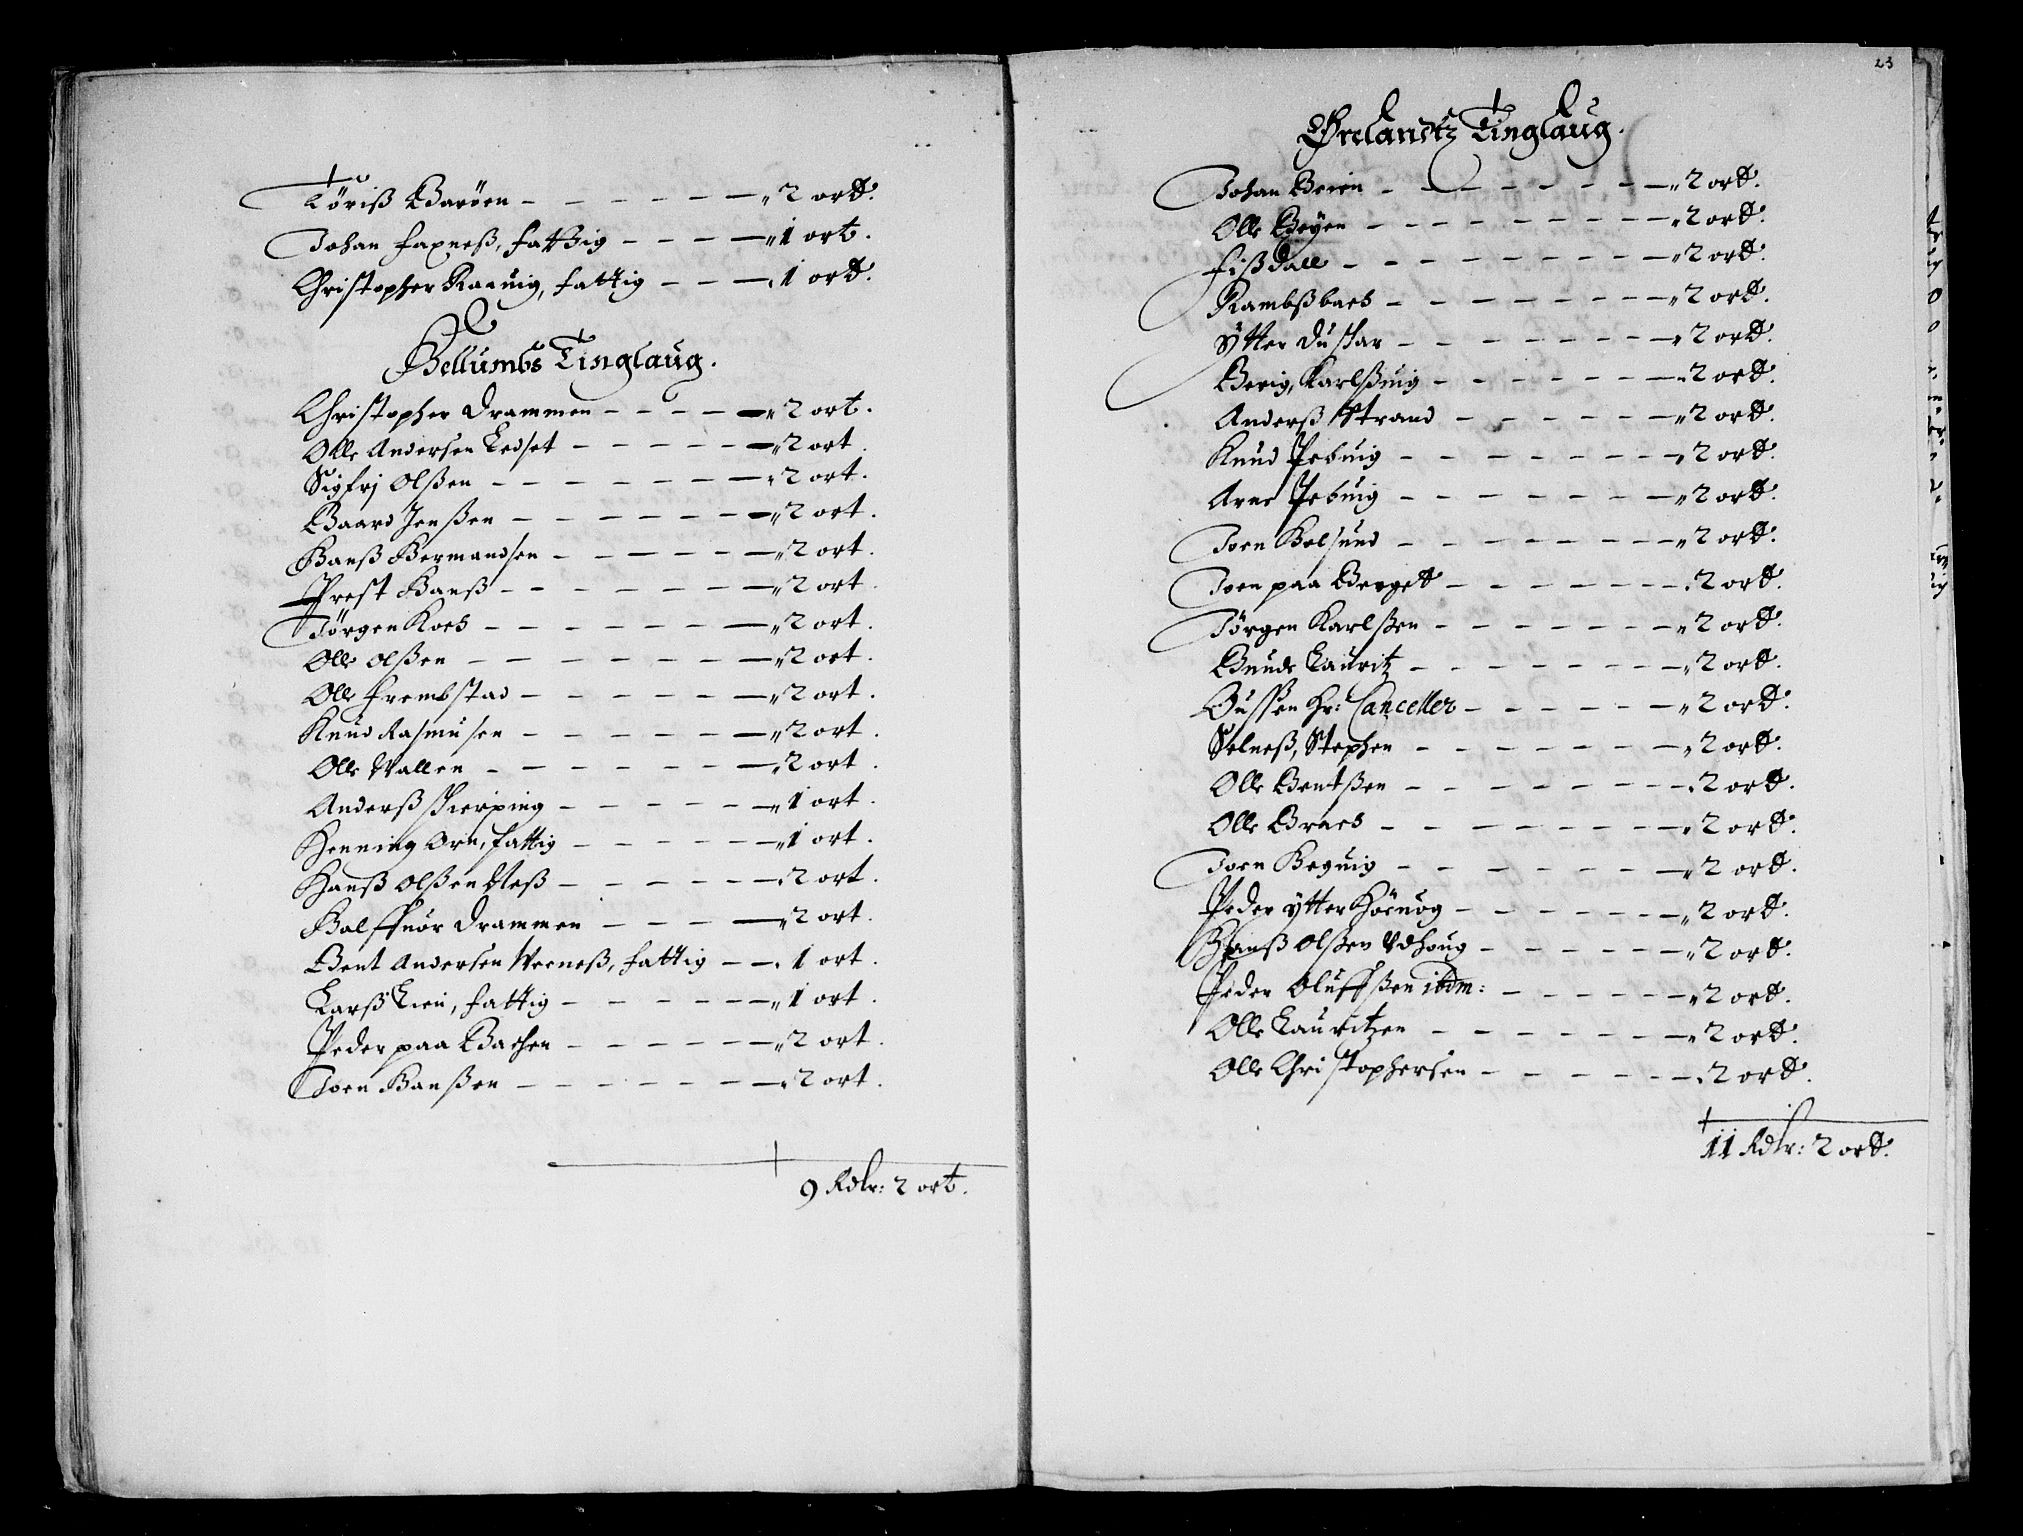 Töriß Baröen - - - - - - - „ 2 ortt.
Johan faxneß, fattig - - - - „ 1 ort.
Christopher Raauig, fattig - - - 1 ortt.
Bellumbs Tinglaug.
Christopher Drammen - - - - - „ 2 ort.
Olle Andersen Ledset - - - - - „ 2 ort
Sigfrj Olßen - - - - - - - „ 2 ort.
Baard Jenßen - - - - - - - „ 2 ort.
Hanß Hermandsen - - - - - - „ 2 ort.
Prest Hanß - - - - - - - „ 2 ort
Jörgen Koes - - - - - - - „ 2 ort.
Olle Olßen - - - - - - - „ 2 ort.
Olle frembstad - - - - - - - „ 2 ort.
Knud Rasmusen - - - - - - „ 2 ort.
Olle Vallen - - - - - - - „ 2 ort.
Anderß skierping - - - - - - „ 1 ort.
Henning Orn, fattig - - - - - - „ 1 ort.
Hanß Olßen Neß - - - - - - 2 ort.
Halffuor Drammen - - - - „ 2 ort.
Bent Andersen Werneß, fattig - - . 1 ort.
Larß Lien, fattig - - - - - - „ 1 ort.
Peder paa Bachen - - - - - - „ 2 ort.
Joen Hanßen - - - - - - - „ 2 ort.
9 Rdlr: 2 ort.
23
Ørelandtz Tinglaug.
Johan Beien - - - - - - - - „ 2 ortt.
Olle Beÿen - - - - - - - - „ 2 ortt.
fißdall - - - - - - - - „ 2 ortt.
Rambßbaes - - - - - - - - „ 2 ortt.
ÿtter Duskar - - - - - - - - „ 2 ortt.
Berig, Karlßuig - - - - - - - 2 ortt.
Anderß Strand - - - - - - „ 2 ortt.
Knud Pebuig - - - - - - - „ 2 ortt.
Arne Pebuig - - - - - - - „ 2 ortt.
Joen Holsund - - - - - - - „ 2 ortt.
Joen paa Berget - - - - - - . 2 ortt.
Jörgen Karlßen - - - - - - - „ 2 ortt.
Bunde Lauritz - - - - - - - „ 2 ortt.
Bussen Hr: Canceller - - - - - - „ 2 ortt.
Selneß, Stephen - - - - - - - „ 2 ortt.
Olle Bentßen - - - - - - - - 2 ortt.
Olle Braes - - - - - - - - „ 2 ortt.
Joen Beguig - - - - - - - - „ 2 ortt.
Peder ytter Höeuog - - - - - - „ 2 ortt.
Hanß Olßen Vdhoug - - - - - - „ 2 ortt.
Peder Oluffßen ibdm: - - - - - - „ 2 ortt.
Olle Lauritzen - - - - - - - „ 2 ortt.
Olle Christophersen - - - - - - . 2 ortt.
11 Rdlr: 2 ortt.